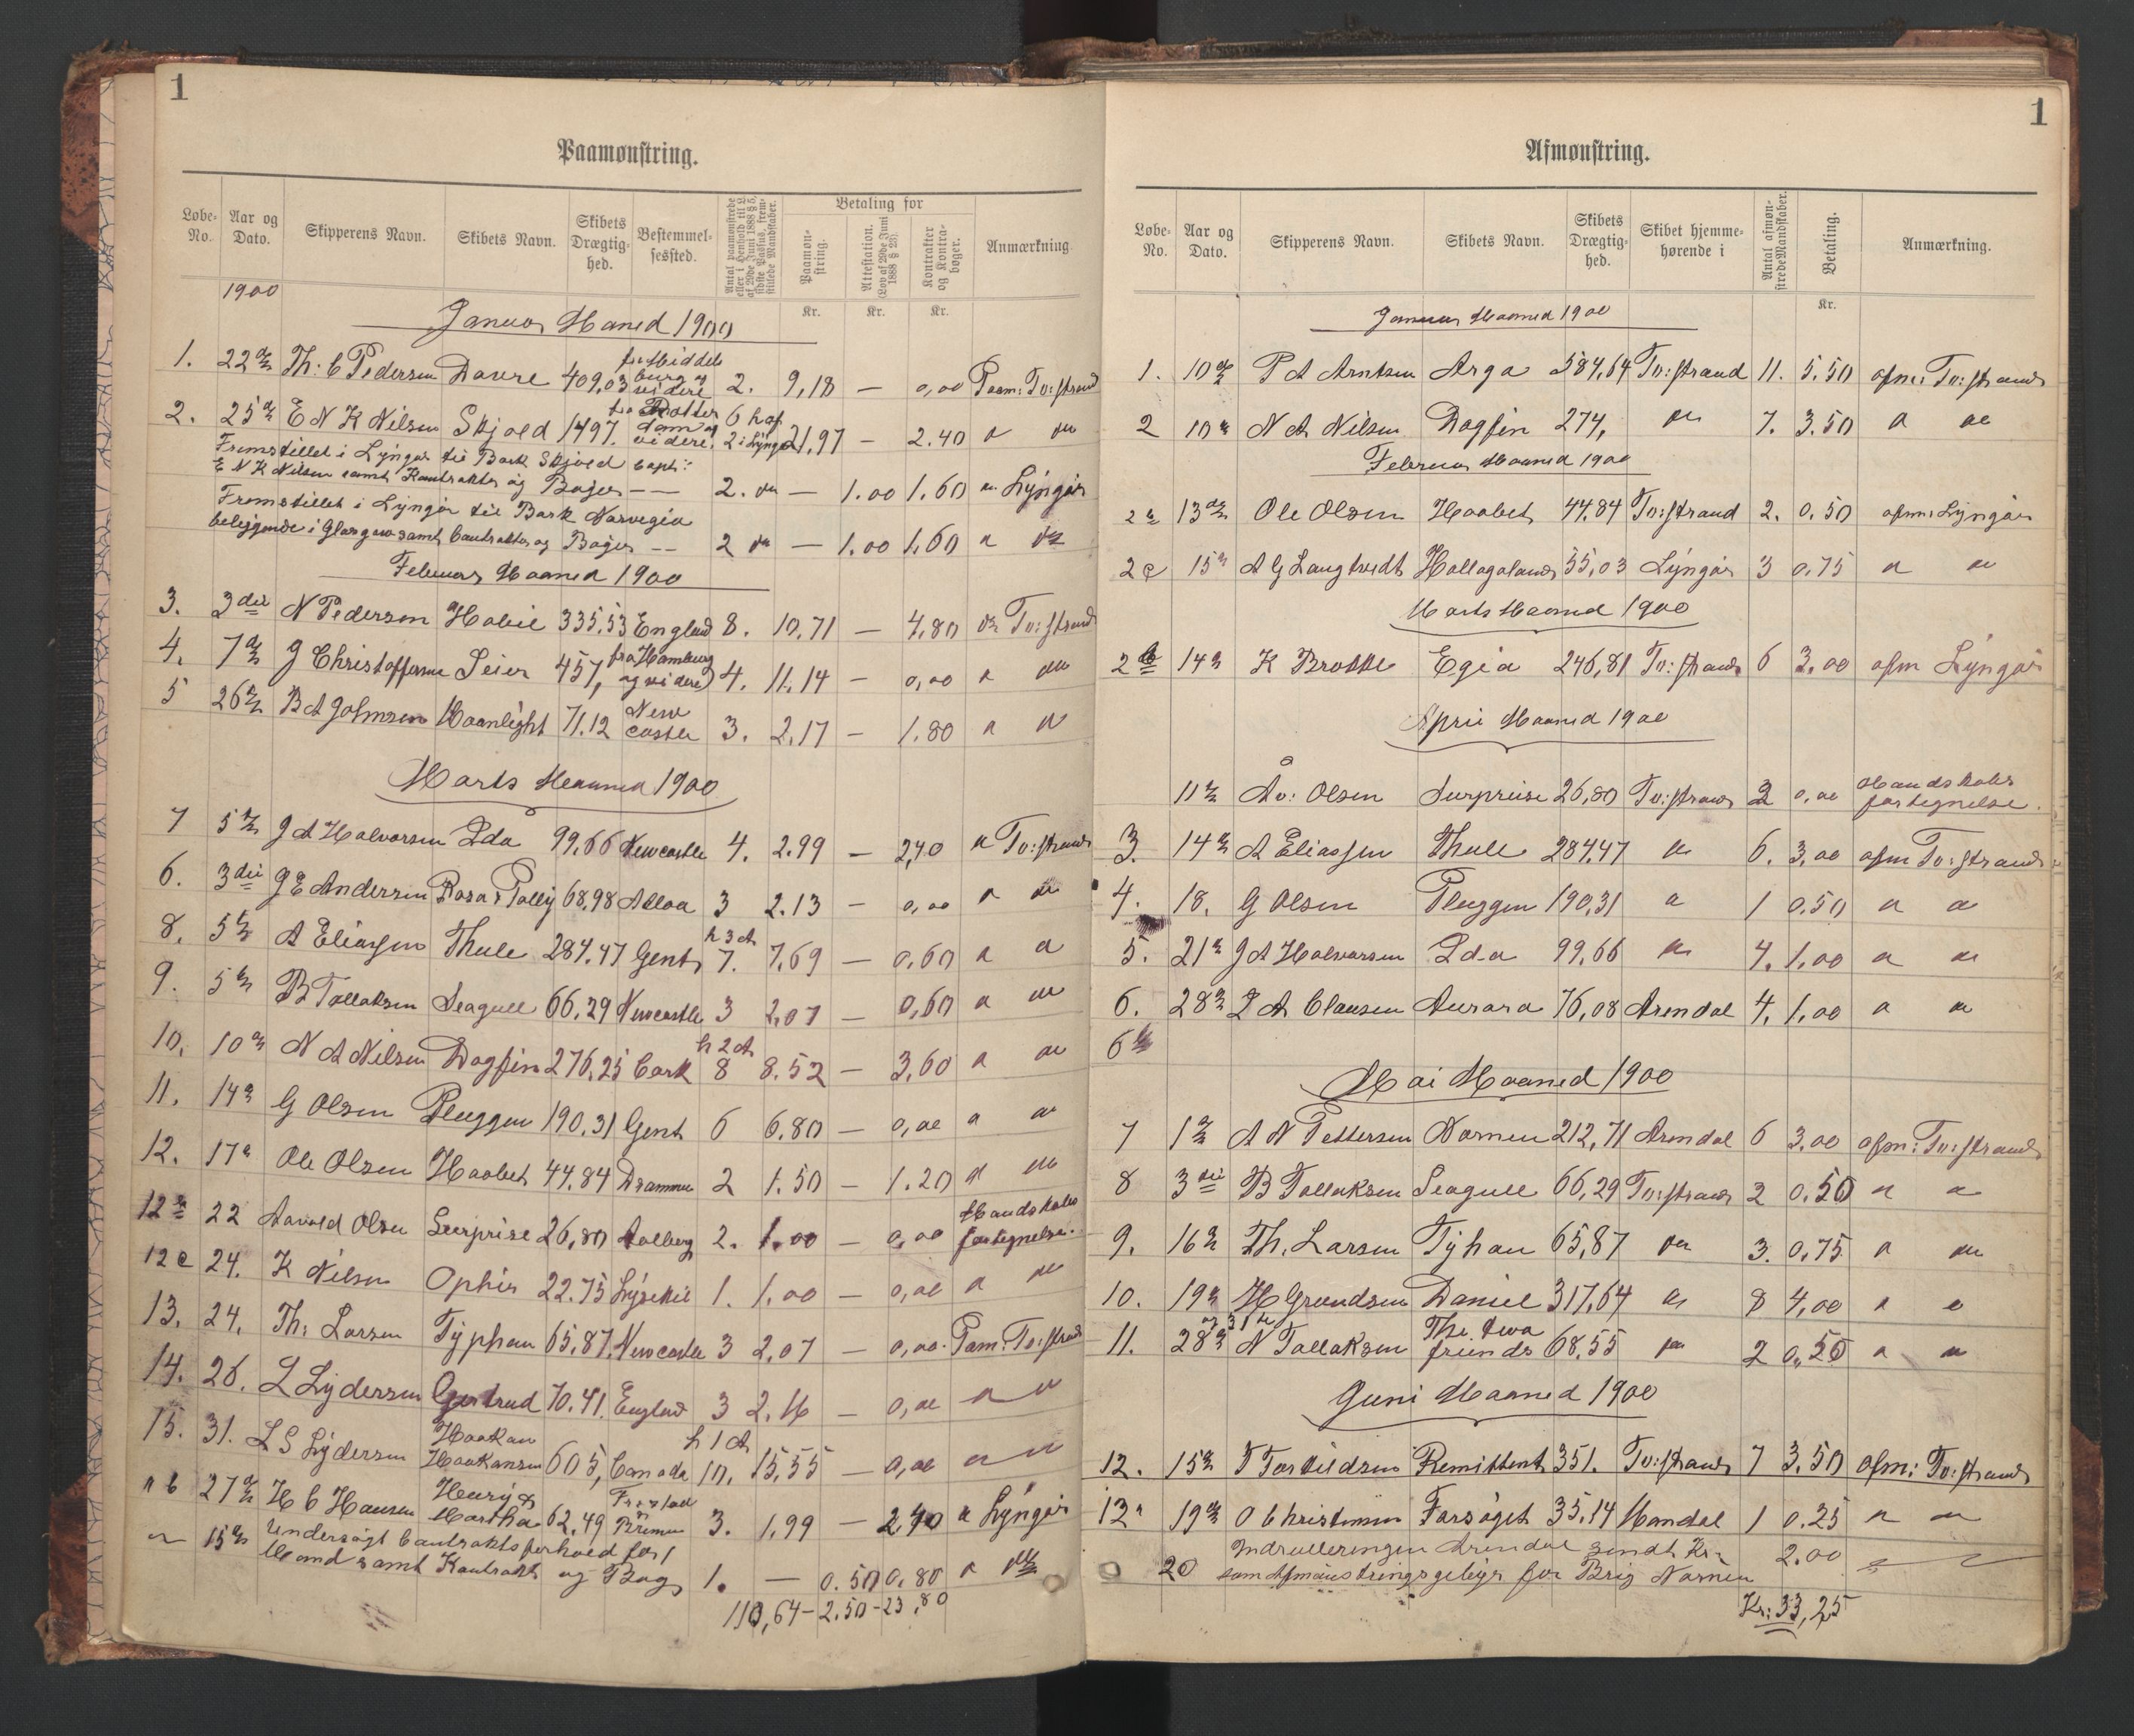 1
Paamønstring.
Løbe-No. Aar og Dato. Skipperens Navn. Skibets Navn. Skibets Drægtighed. Bestemmelsessted. Antal paamønstrede eller i Henhold til L. af 29de Juni 1888 § 5, sidste Passus, fremstillede Mandskaber. Betaling for Paamønstring. Attestation. (Lov af 29de Juni 1888 § 23). Kontrakter og Kontrabøger. Anmærkning
Kr. Kr. Kr.
1900
Januar Maaned 1900
1. 22de Th: C Pedersen Dovre 409,03 fra Middelburg og videre 2. 9,18 — 0,00 Paam: Tv:strand
2. 25de E N K Nilsen Skjold 1497. fra Rotterdam og videre. 6 haf 2 i Lyngør 21,97 — 2.40 " "
Fremstillet i Lyngør til Bark Skjold capt:
E N K Nilsen samt Kontrakter og Bøger — — 2. " — 1.00 1.60 " Lyngør
Fremstillet i Lyngør til Bark Norvegia
beliggende i Glasgow samt Contrakter og Bøger — — 2 " — 1.00 1,60 " "
Februar Maaned 1900
3. 3die N Pedersen Habil 335,53 England 8. 10,71 — 4,80 " Tv:strand
4. 7de J Christoffersen Seier 457, fra Hamburg og videre 4. 11,14 — 0,00 " "
5 26de B A Johnsen Moonlight 71.12 New castle 3. 2,17 — 1.80 " "
Marts Maaned 1900
7 5te J A Halvorsen Ida 99,66 Newcastle 4. 2.99 — 2,40 " Tv:strand
6. 3die J E Andersen Rosa & Polly 68,98 Alloa 3 2.13 — 0,00 " "
8. 5te A Eliassen Thule 284.47 Gent 7. 7,69 — 0,60 " "
9. 5te B Tallaksen Seagull 66,29 Newcastle 3 2,07 — 0,60 " "
10. 10de N A Nilsen Dagfin 276,25 Cork 8 8.52 — 3,60 " "
11. 14de G Olsen Pluggen 190.31 Gent 6 6.80 — 0,00 " "
12. 17de Ole Olsen Haabet 44.84 Drammen 2 1.50 — 1.20 " "
12a 22 Aavald Olsen Surprise 26,80 Aalborg 2. 1.00 — 0,00 Mandskabsfortegnelse.
12c 24. K Nilsen Ophir 22.75 Lysekil 1. 1.00 — 0,00 " "
13. 24. Th: Larsen Typhan 65,87. Newcastle 3 2,07 — 0,00. Paam: Tv:strand
14. 26. L Lydersen Gertrud 70.41. England 3 2.16 — 0,00 " "
15. 31. L S Lydersen Haakon Haakonsen 605, Canada 10. 15,55 — 0,00 " "
" b 27de H C Hansen Henry & Martha 62,49 3. 1,99 — 2,40 " Lyngør
" 15de Undersøgt Contraktsforhold for 1
Mand samt Kontrakt og Bog 1. — 0.50 0,80 " "
110,64 - 2.50 - 23,80
1
Afmønstring.
Løbe-No. Aar og Dato. Skipperens Navn. Skibets Navn. Skibets Drægtighed. Skibet hjemmehørende i Antal afmønstrede Mandskaber. Betaling. Anmærkning.
Kr.
Januar Maaned 1900
1. 10de P A Arntsen Arga 584,64 Tv:strand 11. 5.50 afm: Tv:strand
2 10de N A Nilsen Dagfin 274, " 7. 3.50 " "
Februar Maaned 1900
2a 13de Ole Olsen Haabet 44.84 Tv:strand 2. 0.50 afm: Lyngør
2c 15de A G Langtvedt Hallagaland 55,03 Lyngør 3 0,75 " "
Marts Maaned 1900
2b 14de K Brokke Egia 246,81 Tv:strand 6 3,00 afm Lyngør
April Maaned 1900
11te Åv: Olsen Surprise 26,80 Tv:strand 2 0,00 Mandskabsfortegnelse.
3. 14de A Eliassen Thule 284.47 " 6. 3,00 afm Tv:strand
4. 18. G Olsen Pluggen 190,31 " 1 0.50 " "
5. 21de J A Halvorsen Ida 99,66 " 4. 1,00 " "
6. 28de I A Clausen Aurora 76,08 Arendal 4. 1,00 " "
6b
Mai Maaned 1900
7 1ste A N Pettersen Nornen 212,71 Arendal 6 3,00 afm: Tv:strand
8 3die B Tallaksen Seagull 66,29 Tv:strand 2 0,50 " "
9. 16de Th. Larsen Tyhan 65,87 " 3. 0,75 " "
10. 19de H Grundsen Daniel 317,64 " 8 4,00 " "
11. 28de og 31te N Tallaksen The two friends 68,55 " 2 0,50 " "
Juni Maaned 1900
12. 15de T Torkildsen Remittent 351. Tv:strand 7 3.50 afm: Tv:strand
13a 19de O Christensen Forsøget 35,14 Mandal 1 0.25 " "
20 Indrulleringen Arendal sendt Kr. 2.00
som Afmønstringsgebyr for Brig Nornen
Kr: 33,25